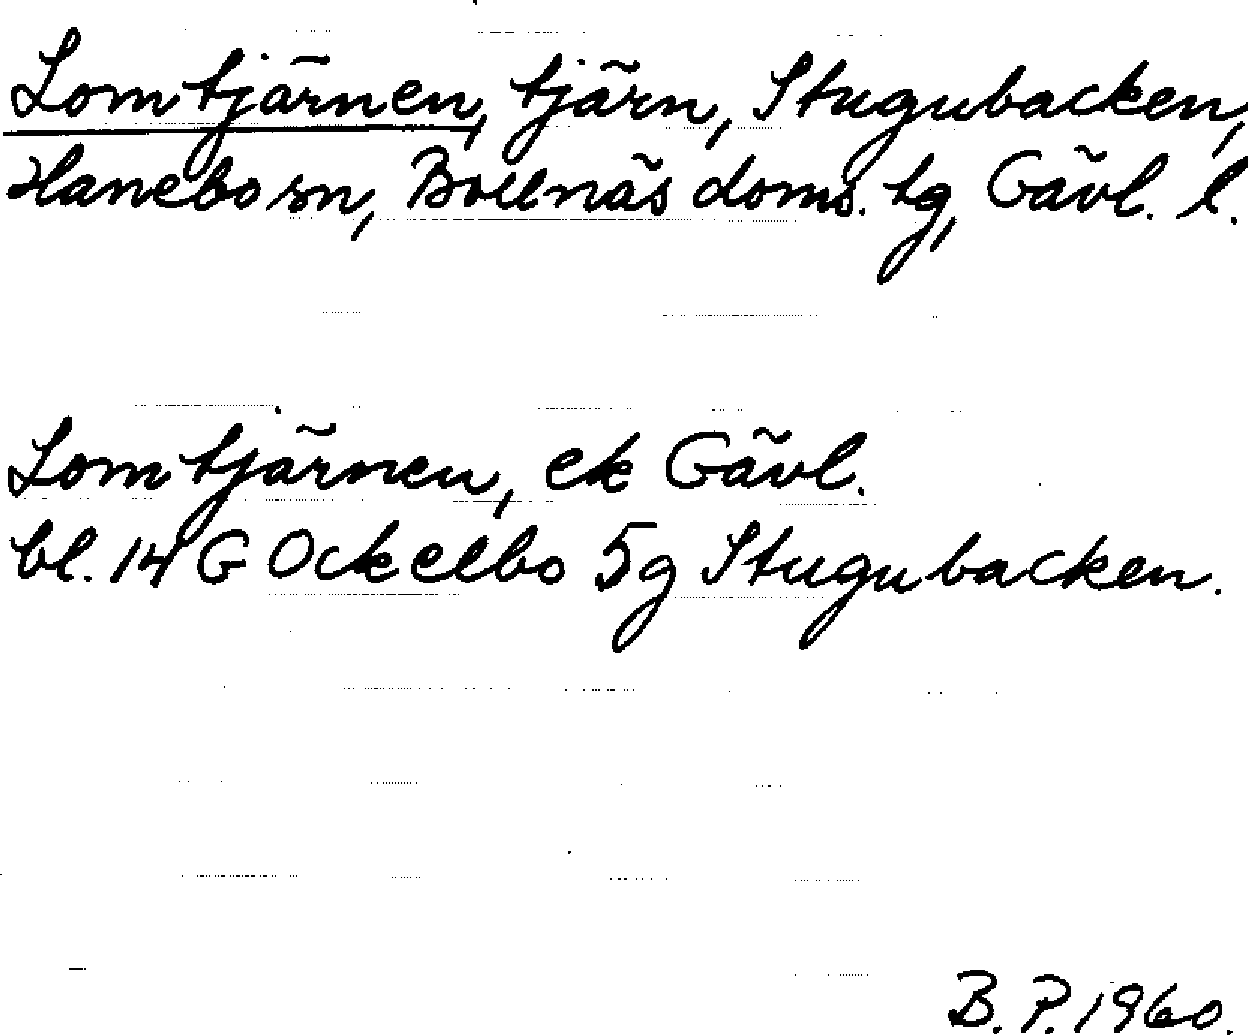 Lomtjärnen, tjärn, Stugubacken,
Hanebo sn, Bollnäs doms. tg, Gävl. l.
Lomtjärnen, ek Gävl.
bl. 14 G Ockelbo 5g Stugubacken.
B. P. 1960.